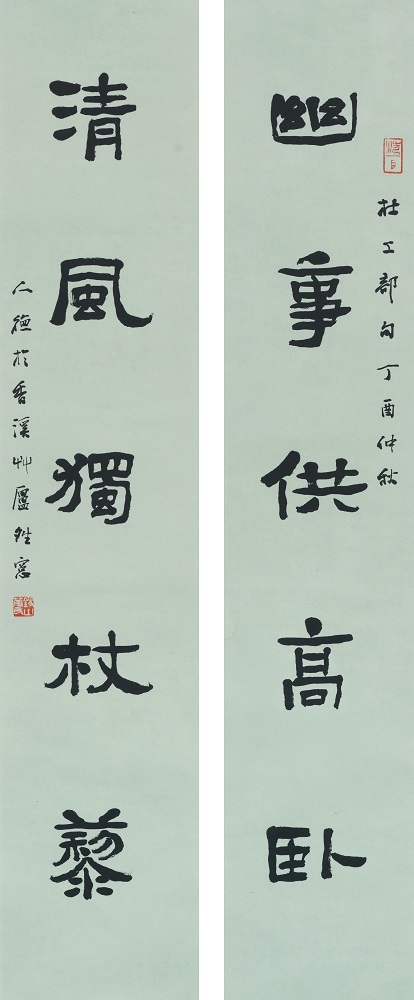 幽事供高卧
杜工部句丁酉仲秋
清風獨杖藜
人德於香溪艸廬雞窓